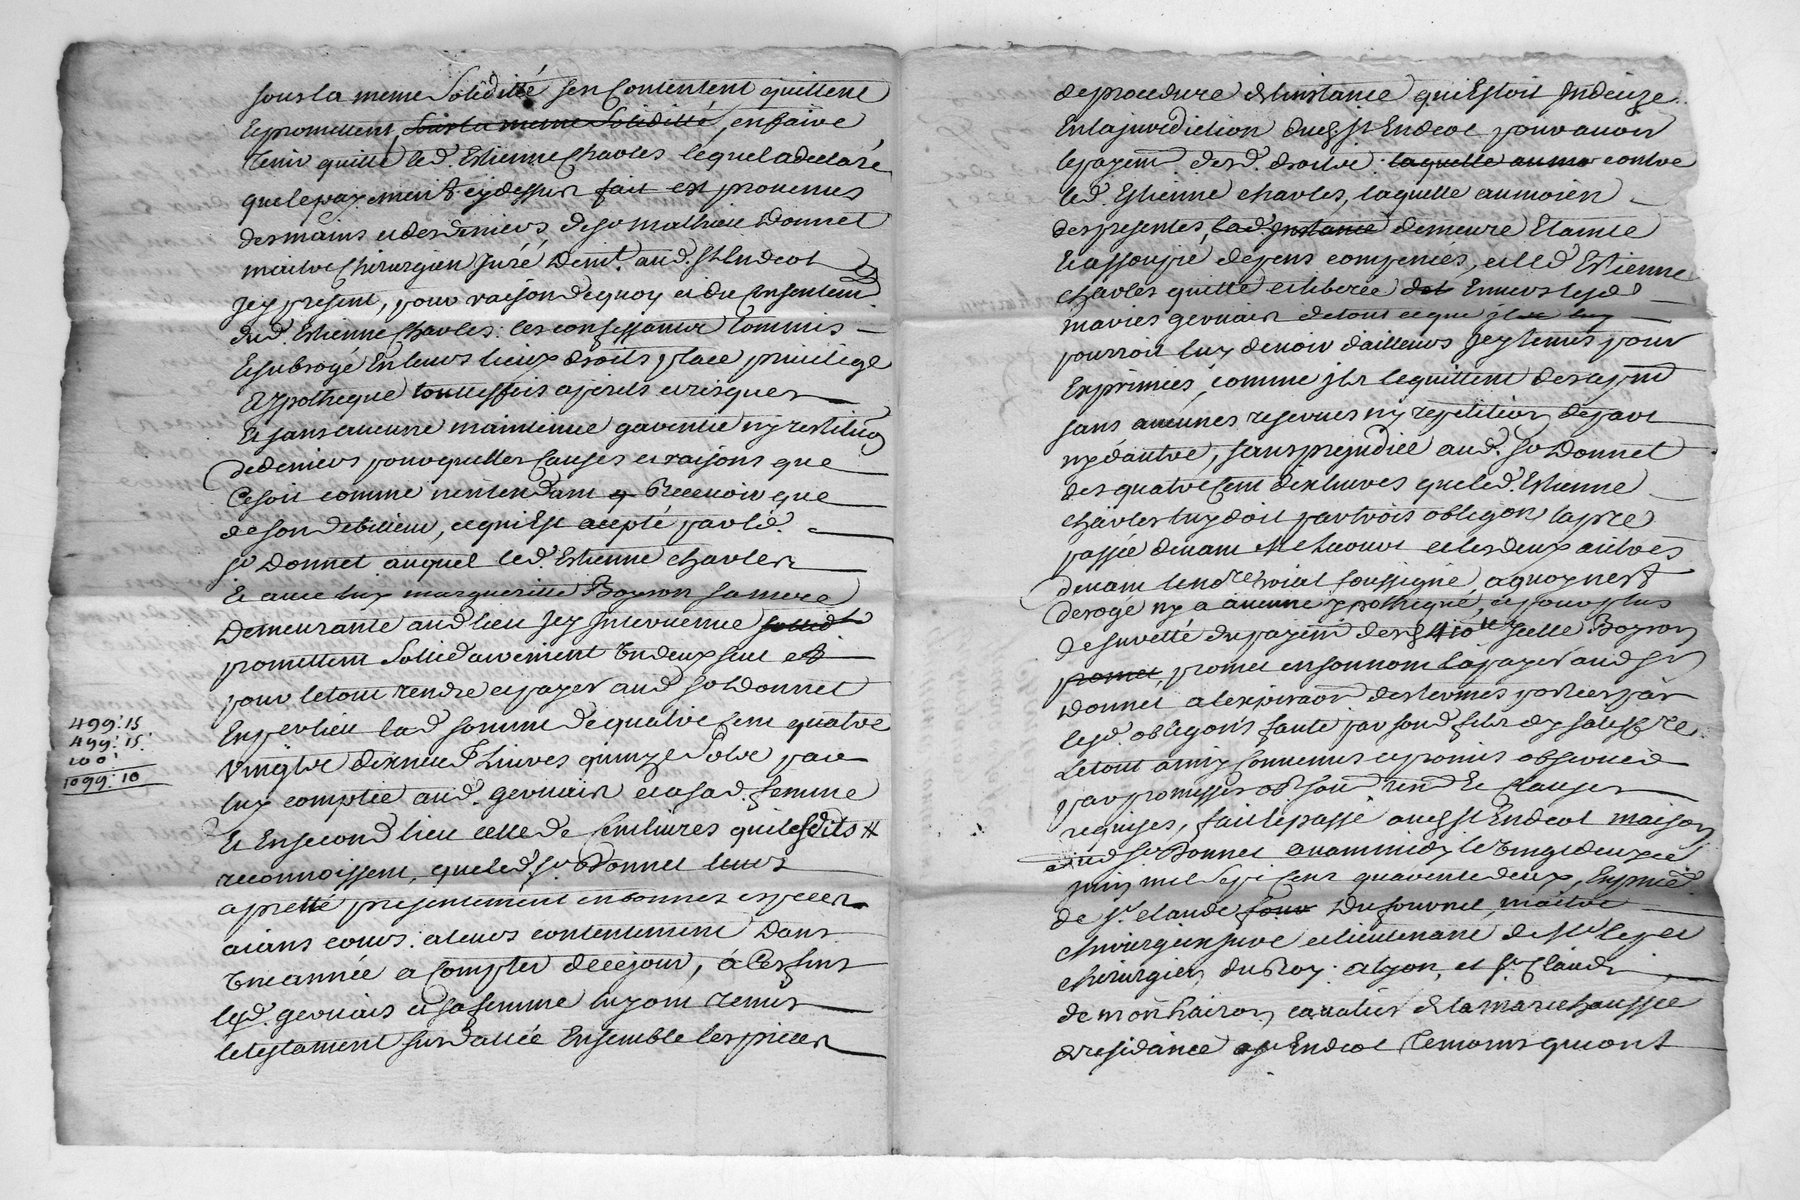 sous la meme solidité sen contentent quittent
et promettent, sous la meme solidité, en faire
tenir quitte led. Estienne Charles lequel a declaré
que le payement cy dessus fait est provenus
des mains et des deniers de sr mathieu Donnet
maitre chirurgien juré demt. aud. st Endeol
jcy present, pour raison dequoy et du consentemt
dud. Estienne Charles les confessants lommis
et subrogé en leurs lieux droits place privilege
et ypotheque touttesfois a perils et risques
et sans aucune maintenue garentie ny restitution
de deniers pour quelles causes et raisons que
ce soit comme nentendant recevoir que
de son debiteur, ce qui est acepté par led.
sr Donnet auquel led. Estienne Charles
et avec luy margueritte Boyron sa mere
Demeurante aud lieu jcy intervenue
promettent sollidairement un deux seul et
pour le tout rendre et payer aud sr Donnet
en per lieu lad somme de quatre cent quatre
vingts dixneuf Livres quinze sols par
luy comptée aud. gervais et a sad. femme
499: 15
499: 15
100:
1099: 10
Et en second lieu celle de cent livres quilesdits #
reconnoissent, que led. sr Donnet leurs
a pretté presentement en bonnes especes
aians cours a leurs contentement Dans
une année a compter de ce jour, a ces fins
lesd. gervais et sa femme luy ont remis
le testament sus datté Ensemble les pieces
de procedure et instance qui Estoit jndecize
En la jurediction dud. st Endeol pour avoir
le payemt desd. droits laquelle au mo contre
led. Estienne charles, laquelle au moien
des presentes, lad. jnstance demeure Etainte
et assoupie depens compensés, et led Estienne
charles quitte et liberée envers lesd
mariés gervais de tout ce que
pourroit luy devoir dailleurs jcy tenus pour
Exprimées, comme jls le quittent des apnt
sans aucunes reserves ny repetition de part
ny dautre, sans prejudice aud. sr Donnet
des quatre cent dix livres que led. Estienne
charles luy doit par trois obligon la pre
passée devant et les deux autres
devant le nore roial soussigné, a quoy nest
derogé ny a aucune ypotheque, et pour plus
de suretté du payemt desd 410tt jcelle Boyron
promet, promet en son nom la payer aud sr
Donnet a lexpiraon des termes portées par
lesd. obligons faute par son d fils dy satisfre
Le tout ainsy convenus et promis observer
par promesses obon soumon renon et clauses
requises, fait et passé aud st Endeol maison
dud sr Donnet avant midy le vingt deuxe
juin mil sept cent quarente deux, En pnce
de sr claude four Dufournel maitre
chirurgien juré et lieutenant de Mr le per
chirurgien du Roy a lyon, et sr Claude
de cavalier de la marechaussée
et residance a st Endeol Temoins qui ont